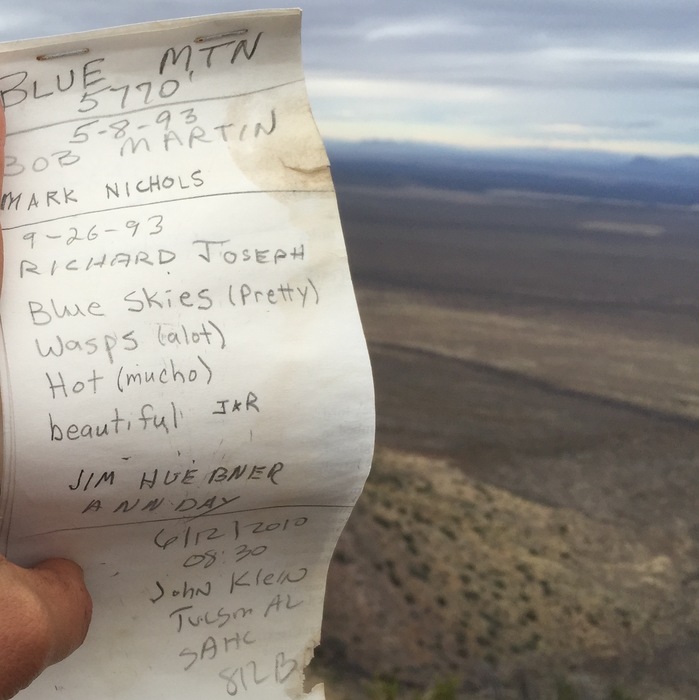 BLUE MTN
5770'
5-8-93
BOB MARTIN
MARK NICHOLS
9-26-93
RICHARD JOSEPH
Blue skies (Pretty)
Wasps (alot)
Hot (mucho)
beautiful J&R
JIM HUEBNER
ANN DAY
6/12/2010
08:30
John Klein
Tucson AZ
SAHC